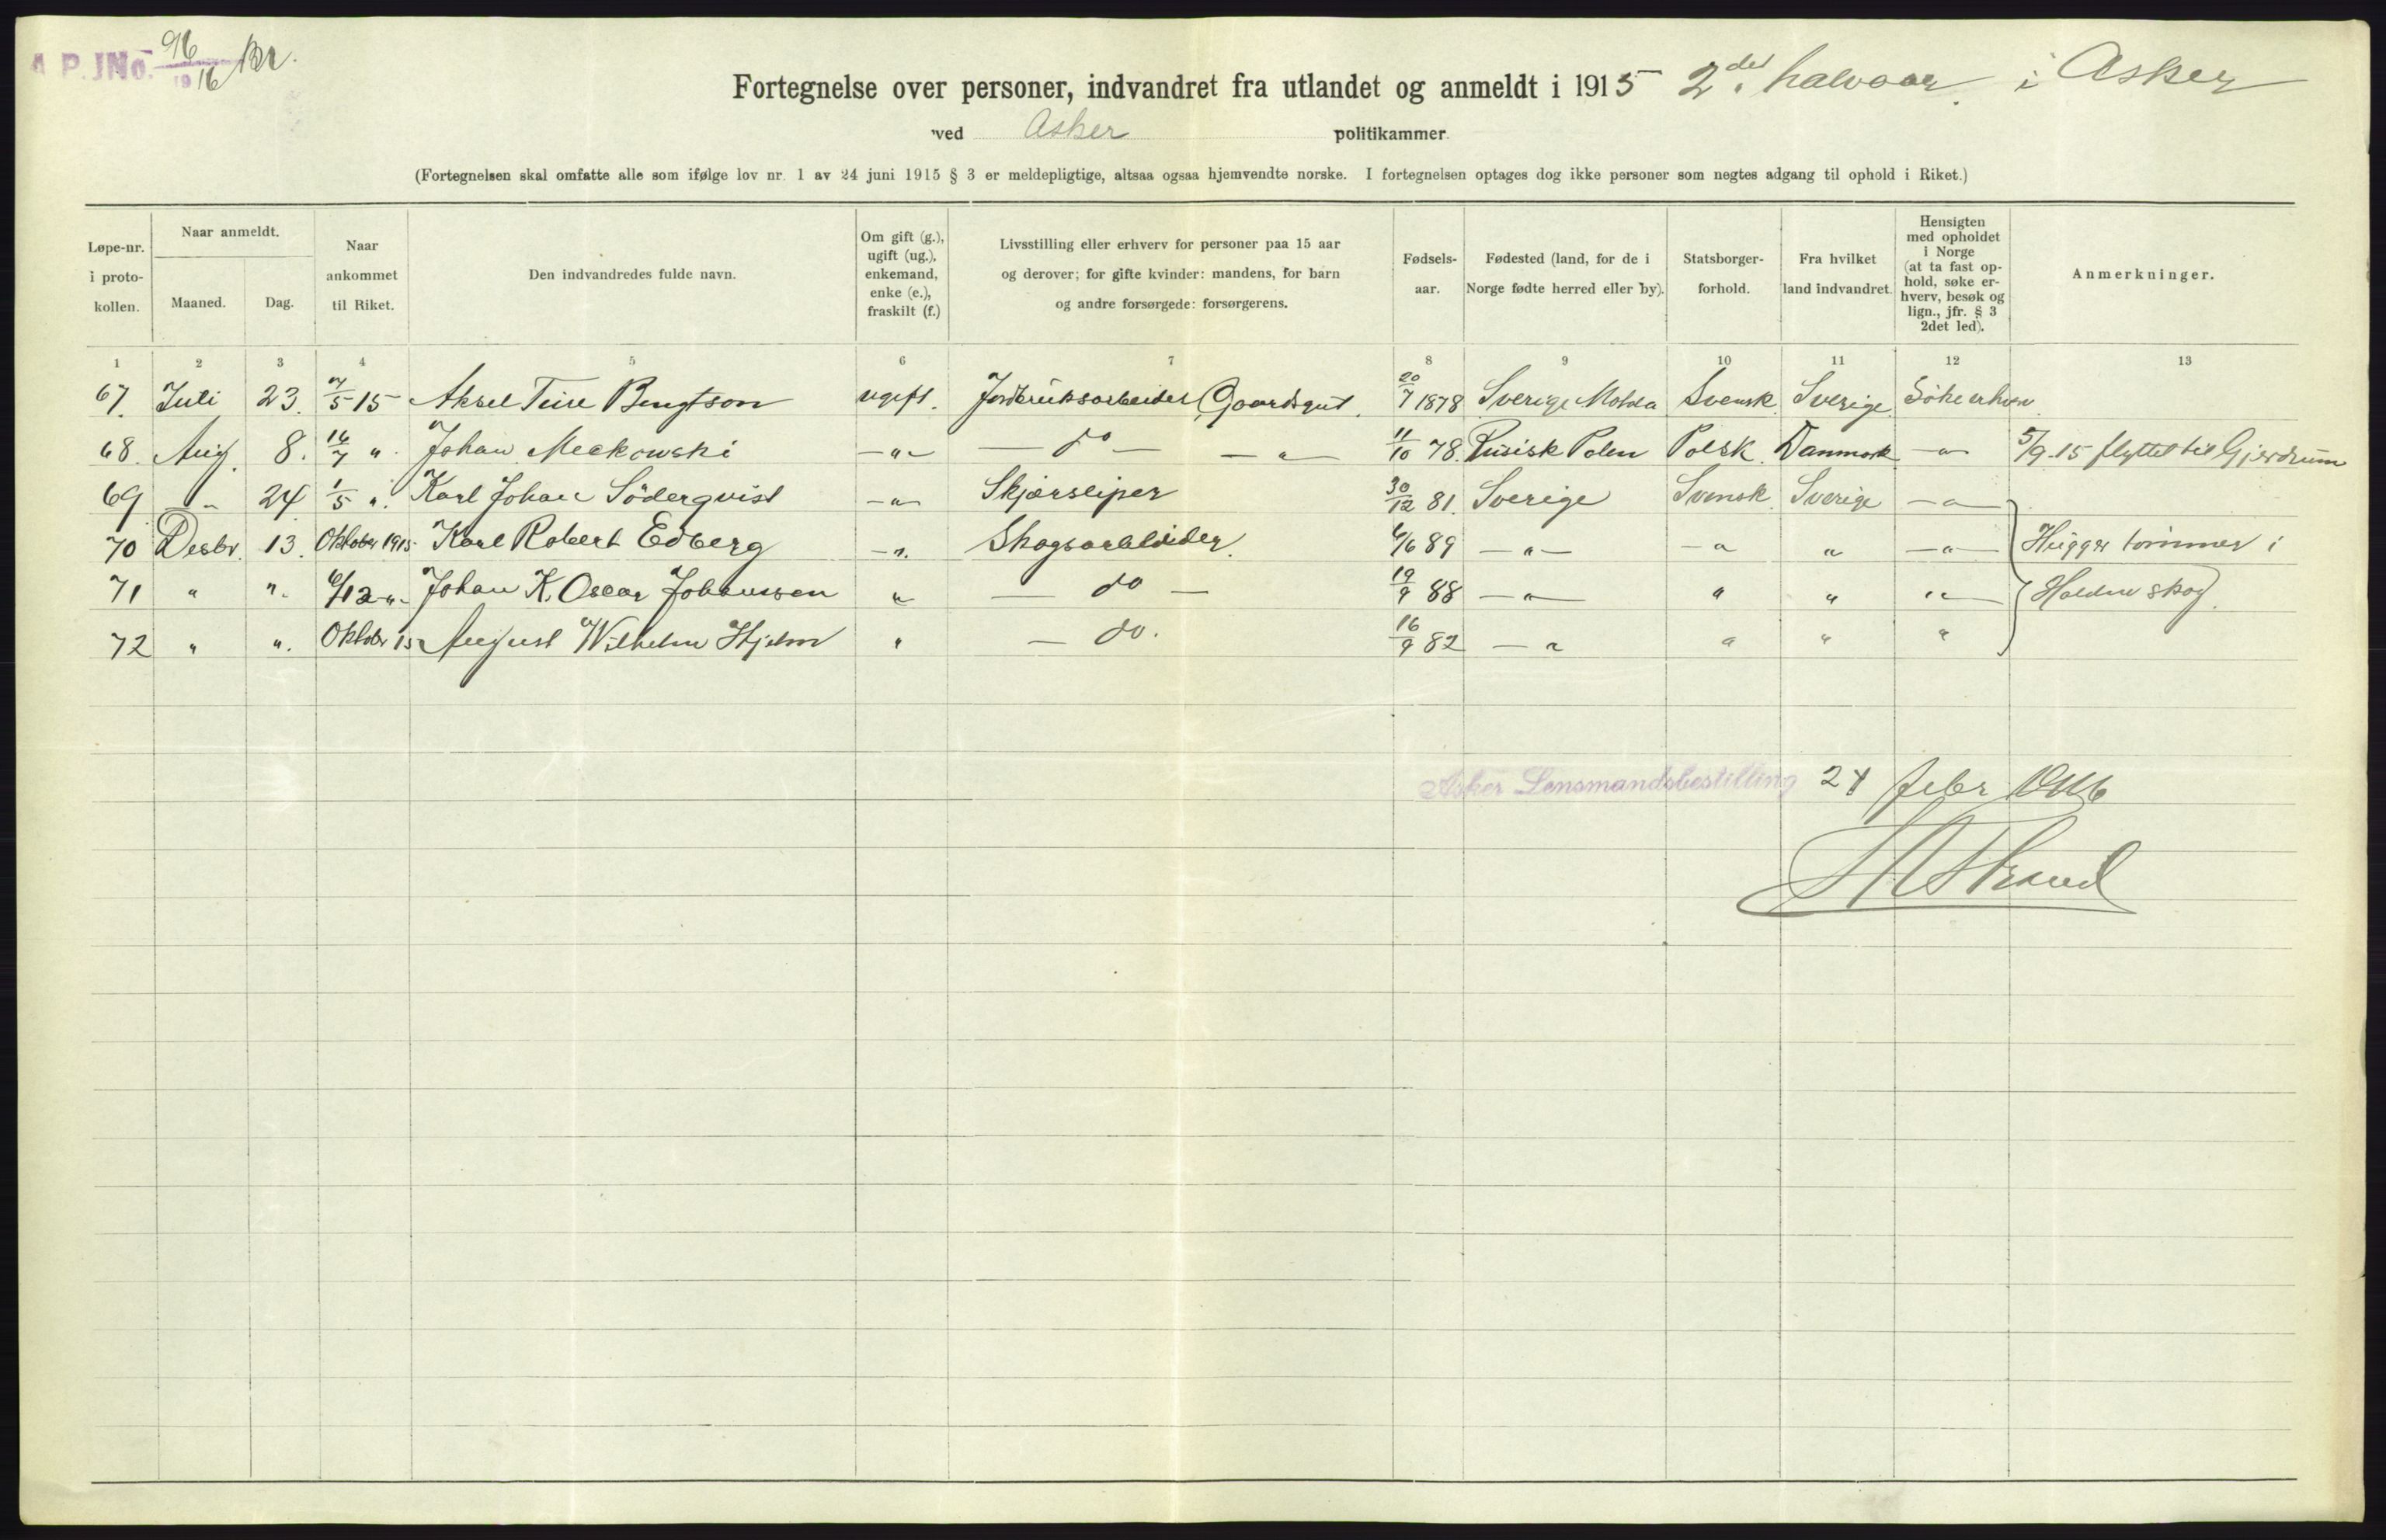 A. P. JNo. 96/1916 Br.
Fortegnelse over personer, indvandret fra utlandet og anmeldt i 1915 2det halvaar i Asker
ved Asker politikammer.
(Fortegnelsen skal omfatte alle som ifølge lov nr. 1 av 24 juni 1915 § 3 er meldepligtige, altsaa ogsaa hjemvendte norske. I fortegnelsen optages dog ikke personer som negtes adgang til ophold i Riket.)
Løpe-nr. i proto-kollen. Naar anmeldt. Maaned. Dag. Naar ankommet til Riket. Den indvandredes fulde navn. Om gift (g.), ugift (ug.), enkemand, enke (e.), fraskilt (f.) Livsstilling eller erhverv for personer paa 15 aar og derover; for gifte kvinder: mandens, for barn og andre forsørgede: forsørgerens. Fødsels-aar. Fødested (land, for de i Norge fødte herred eller by). Statsborger-forhold. Fra hvilket land indvandret. Hensigten med opholdet i Norge (at ta fast op-hold, søke er-hverv, besøk og lign., jfr. § 3 2det led). Anmerkninger.
1 2 3 4 5 6 7 8 9 10 11 12 13
67. Juli 23. 7/5 15 Aksel Bengtson ugift. Jordbruksarbeider, Gaardsgut. 20/7 1878 Sverige Svensk. Sverige. Söke erhverv
68. Aug. 8. 16/7 " Johan Meckowski - " - - do - - " - 11/10 78. Rusisk Polen Polsk. Danmark - " - 5/9-15 flyttet til Gjerdrum
69 " 24. 1/5 ". Karl Johan Söderqvist - " - Skjærsliper 30/12 81. Sverige Svensk. Sverige - " -
70 Desbr. 13. Oktober 1915. Karl Robert Edberg - ". Skogsarbeider. 6/6 89 - " - - " " - " - Hugger tømmer i
71 " ". 6/12 " Johan K. Oscar Johanssen " - do - 19/9 88 - " - " " " - Holden skog.
72 " ". Oktober 15 August Wilhelm Hjelm " - do. 16/9 82 - " " " "
Asker Lensmandsbestilling 24 febr 1916